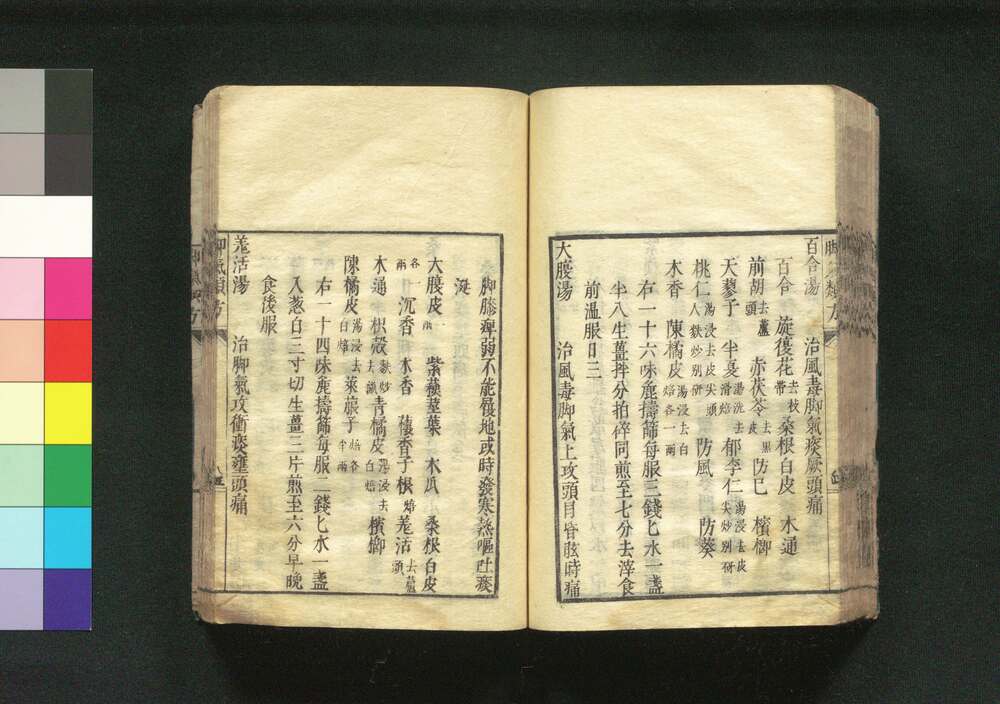 脚氣類方
百合湯　治風毒脚氣痰厥頭痛
百合　旋復花去枝帶　桑根白皮　木通
前胡去蘆頭　赤茯苓去黑皮　防巳　檳榔
天蓼子　半夏湯洗去滑焙　郁李仁湯浸去皮尖炒別研
桃仁湯浸去皮尖頭人麩炒別研　防風　防葵
木香　陳橘皮湯浸去白焙各一兩
右一十六味麁擣篩每服三錢匕水一盞
半入生薑拌分拍碎同煎至七分去滓食
前温服日三
大腹湯　治風毒脚氣上攻頭目昏眩時痛
脚膝痺弱不能履地或時發寒熱嘔吐痰
涎
大腹皮　紫蘓莖葉　木瓜　桑根白皮
各一兩　沉香　木香　蘿香子根焙　羗活去蘆頭
木通　枳殼麩炒去瓤　青橘皮湯浸去白焙　檳榔
陳橘皮湯浸去白焙　萊菔子焙各半兩
右一十四味麁擣篩每服二錢匕水一盞
入葱白三寸切生薑三片煎至六分早晚
食後服
羗活湯　治脚氣攻衝痰壅頭痛
脚氣類方
五